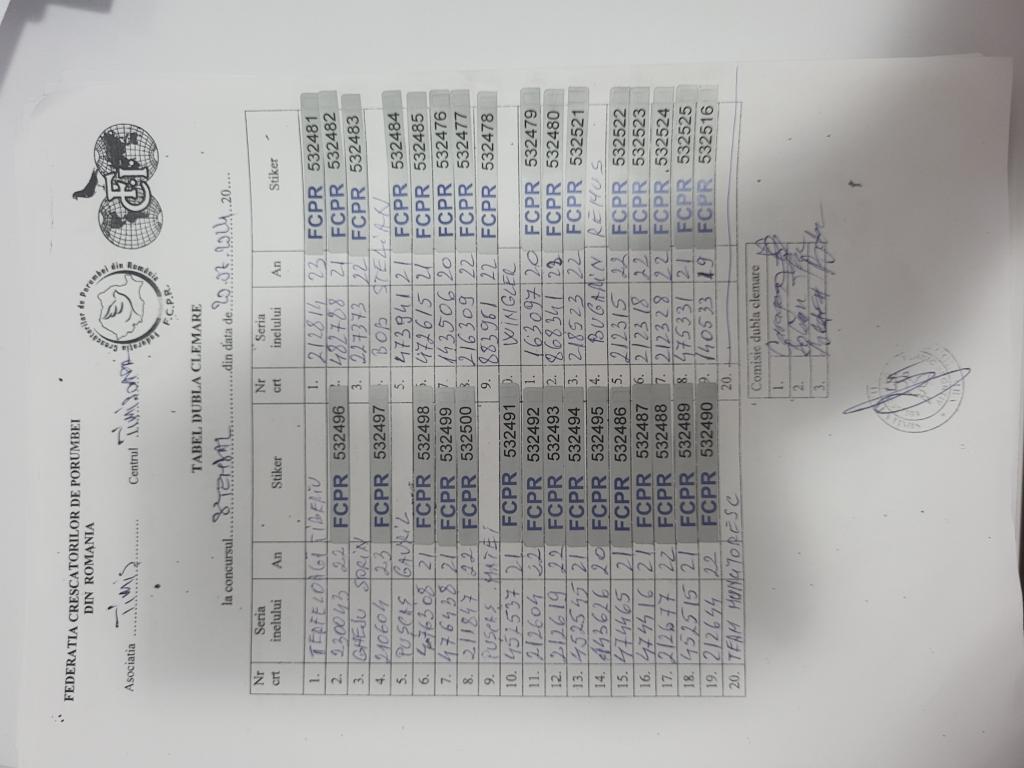 FEDERATIA CRESCATORILOR DE PORUMBEI
DIN ROMANIA
Federatia Crescatorilor de Porumbei din România
F.C.P.R.
Asociatia TIMIS Centrul
TABEL DUBLA CLEMARE
la concursul din data de 20
Nr crt Seria inelului An Stiker Nr crt Seria inelului An Stiker
1. 1. 212814 23 FCPR 532481
2. 200243 22 FCPR 532496 2. 482788 21 FCPR 532482
3. SORIN 3. 227373 22 FCPR 532483
4. 210604 23 FCPR 532497 4. BOB STELIAN FCPR 532484
5. PUSCAS GAVRIL 5. 473941 21 FCPR 532485
6. 476308 21 FCPR 532498 6. 472615 21 FCPR 532476
7. 476438 21 FCPR 532499 7. 143506 20 FCPR 532477
8. 211847 22 FCPR 532500 8. 216309 22 FCPR 532478
9. PUSCAS MATEI 9. 883961 22
10. 452537 21 FCPR 532491 10. WINGLER
11. 212604 22 FCPR 532492 11. 163097 20 FCPR 532479
12. 212619 22 FCPR 532493 12. 868341 FCPR 532480
13. 452545 21 FCPR 532494 13. 218523 22 FCPR 532521
14. 143626 20 FCPR 532495 14. BUGARIN REMUS
15. 474465 21 FCPR 532486 15. 212315 22 FCPR 532522
16. 474416 21 FCPR 532487 16. 212318 22 FCPR 532523
17. 212677 22 FCPR 532488 17. 212328 22 FCPR 532524
18. 452515 21 FCPR 532489 18. 475331 21 FCPR 532525
19. 212644 22 FCPR 532490 19. 140533 19 FCPR 532516
20. TEAM 20.
Comisie dubla clemare
1.
2.
3.